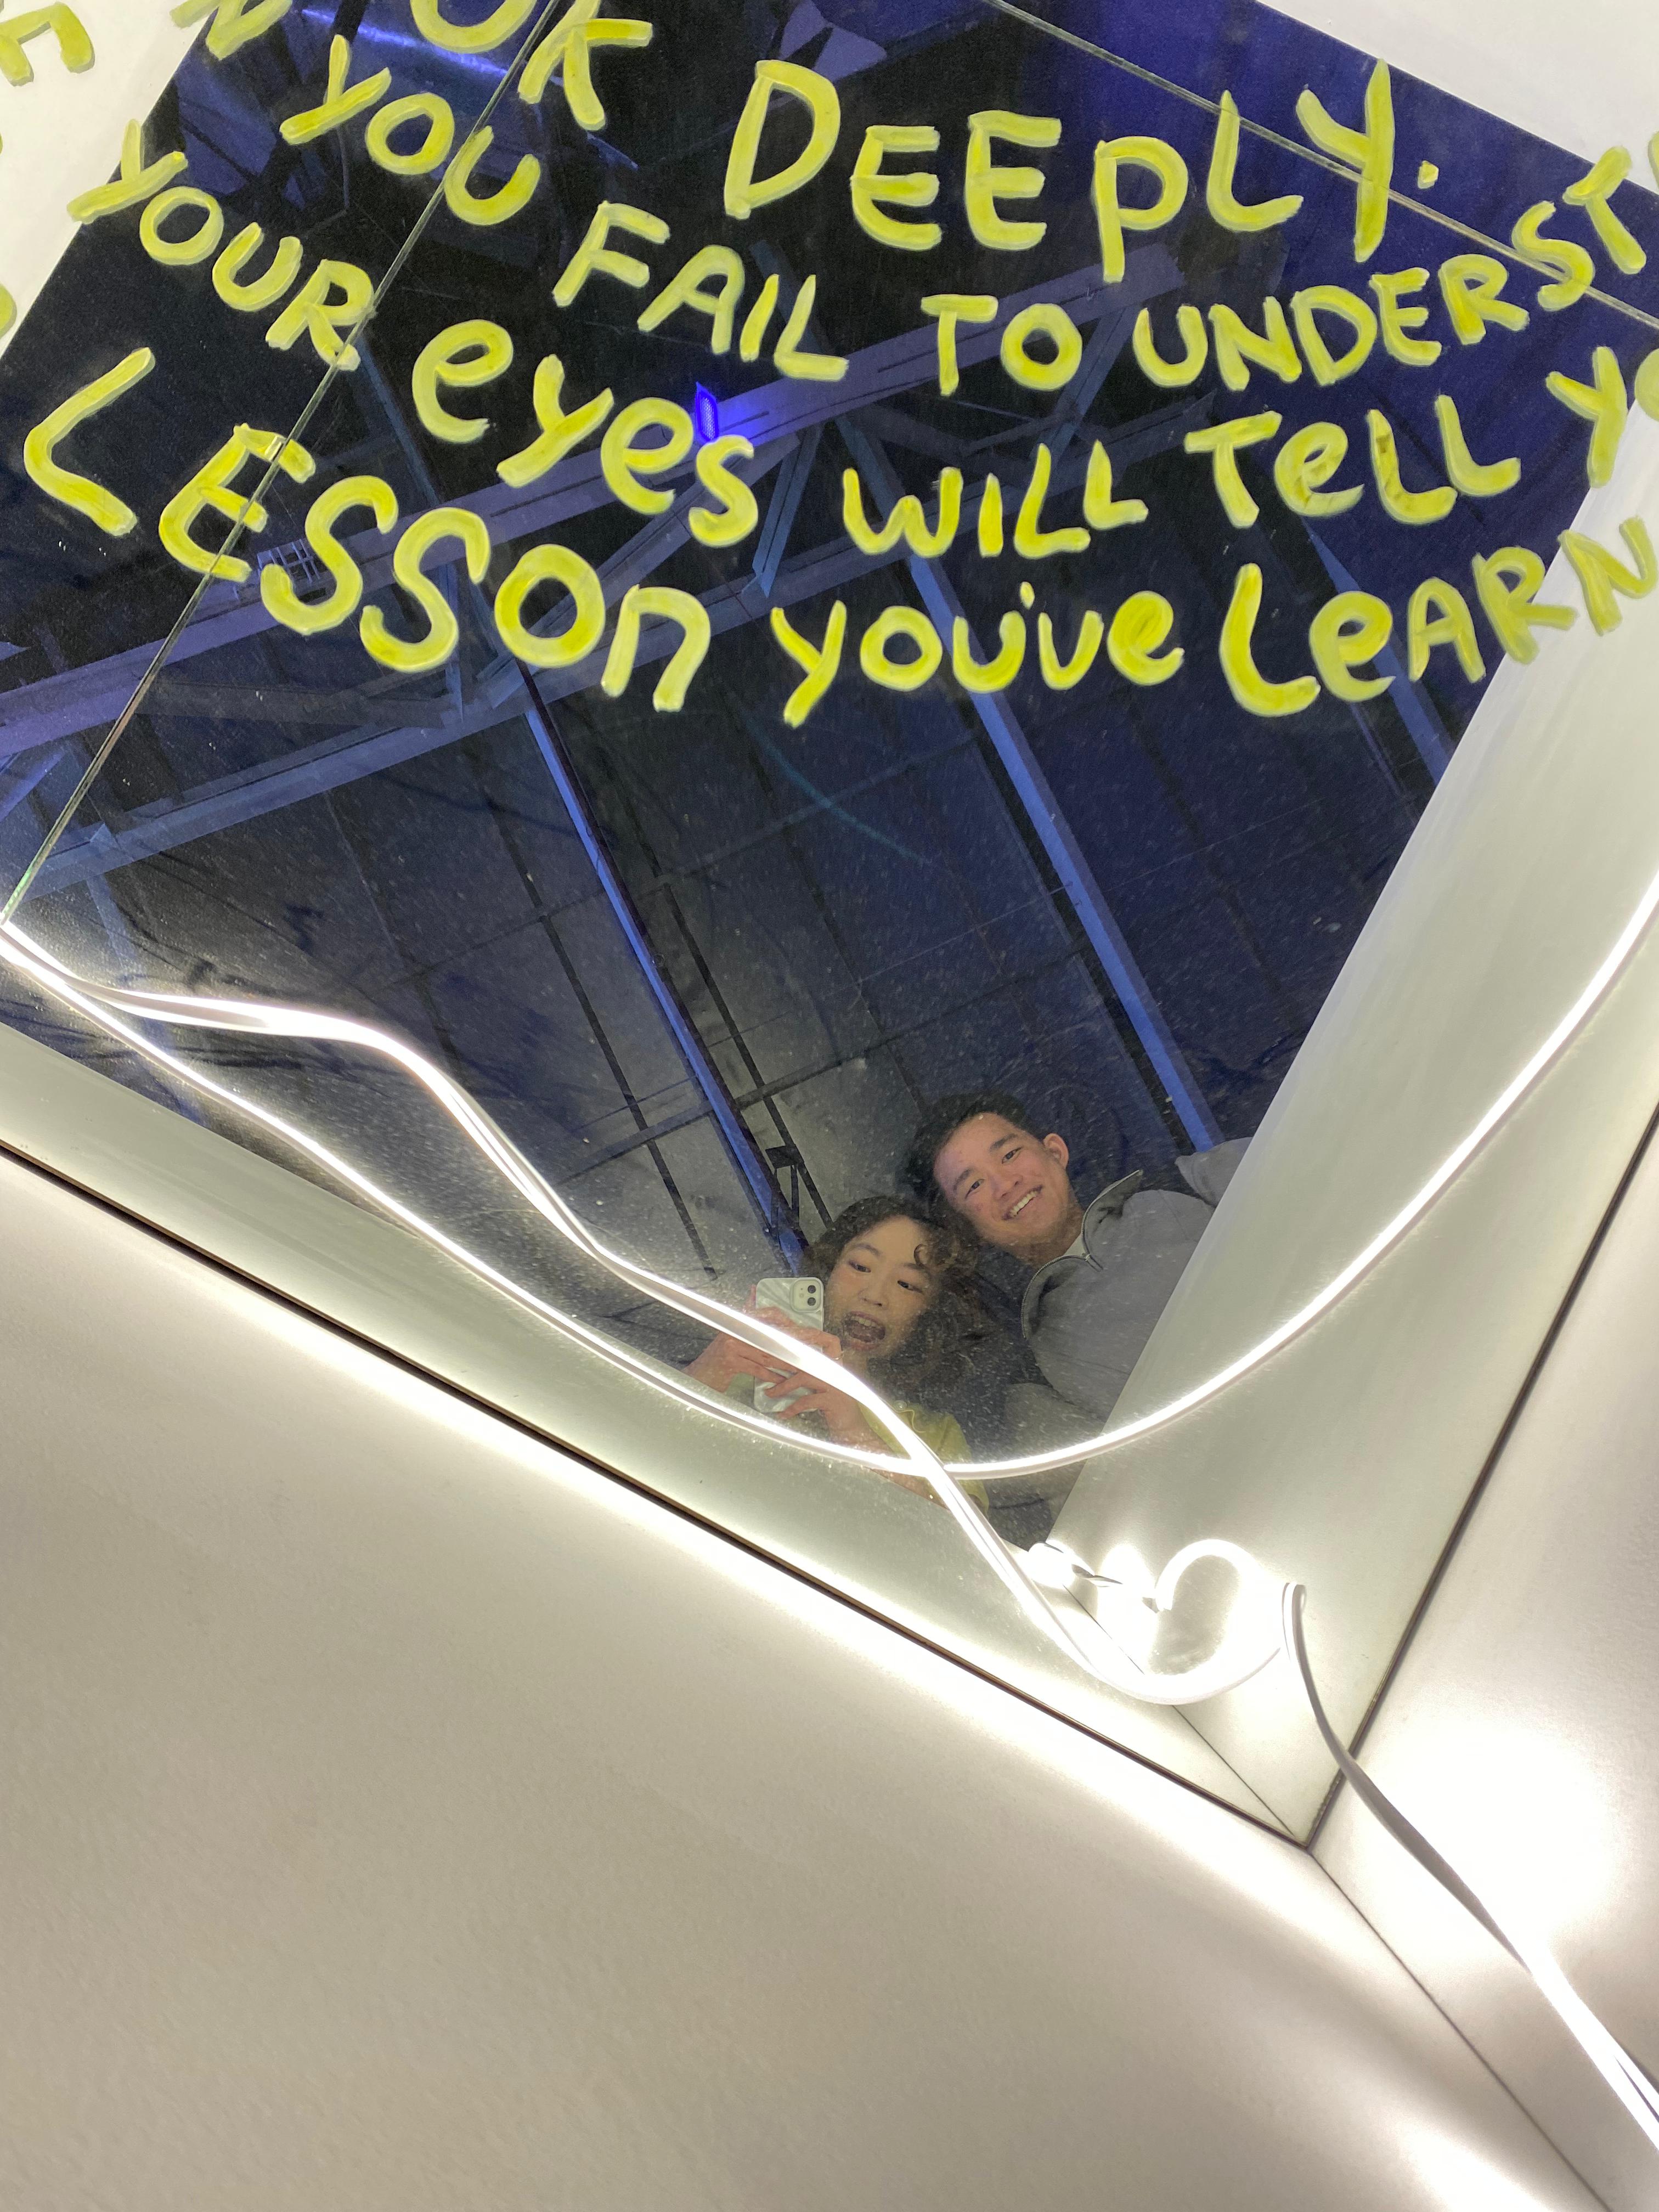 DEEPLY.
YOU FAIL TO UNDERST
YOUR eyes WILL TeLL YO
LESSON you've LeARN